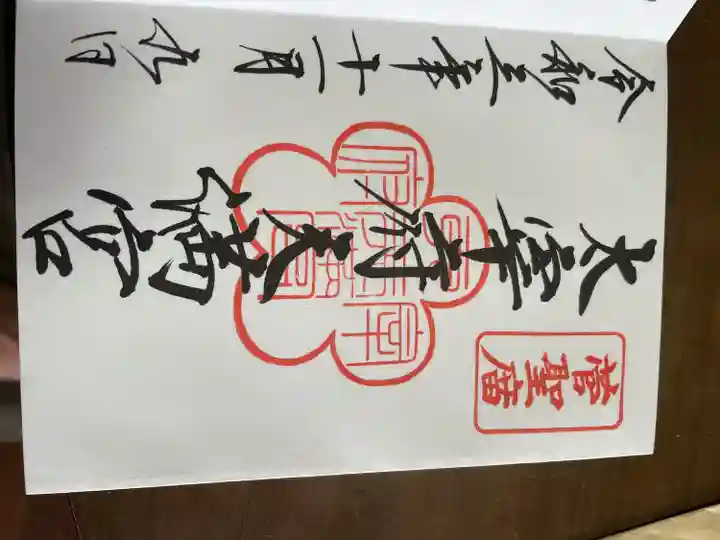 菅聖庿
太宰府天満宮
令和三年十一月九日